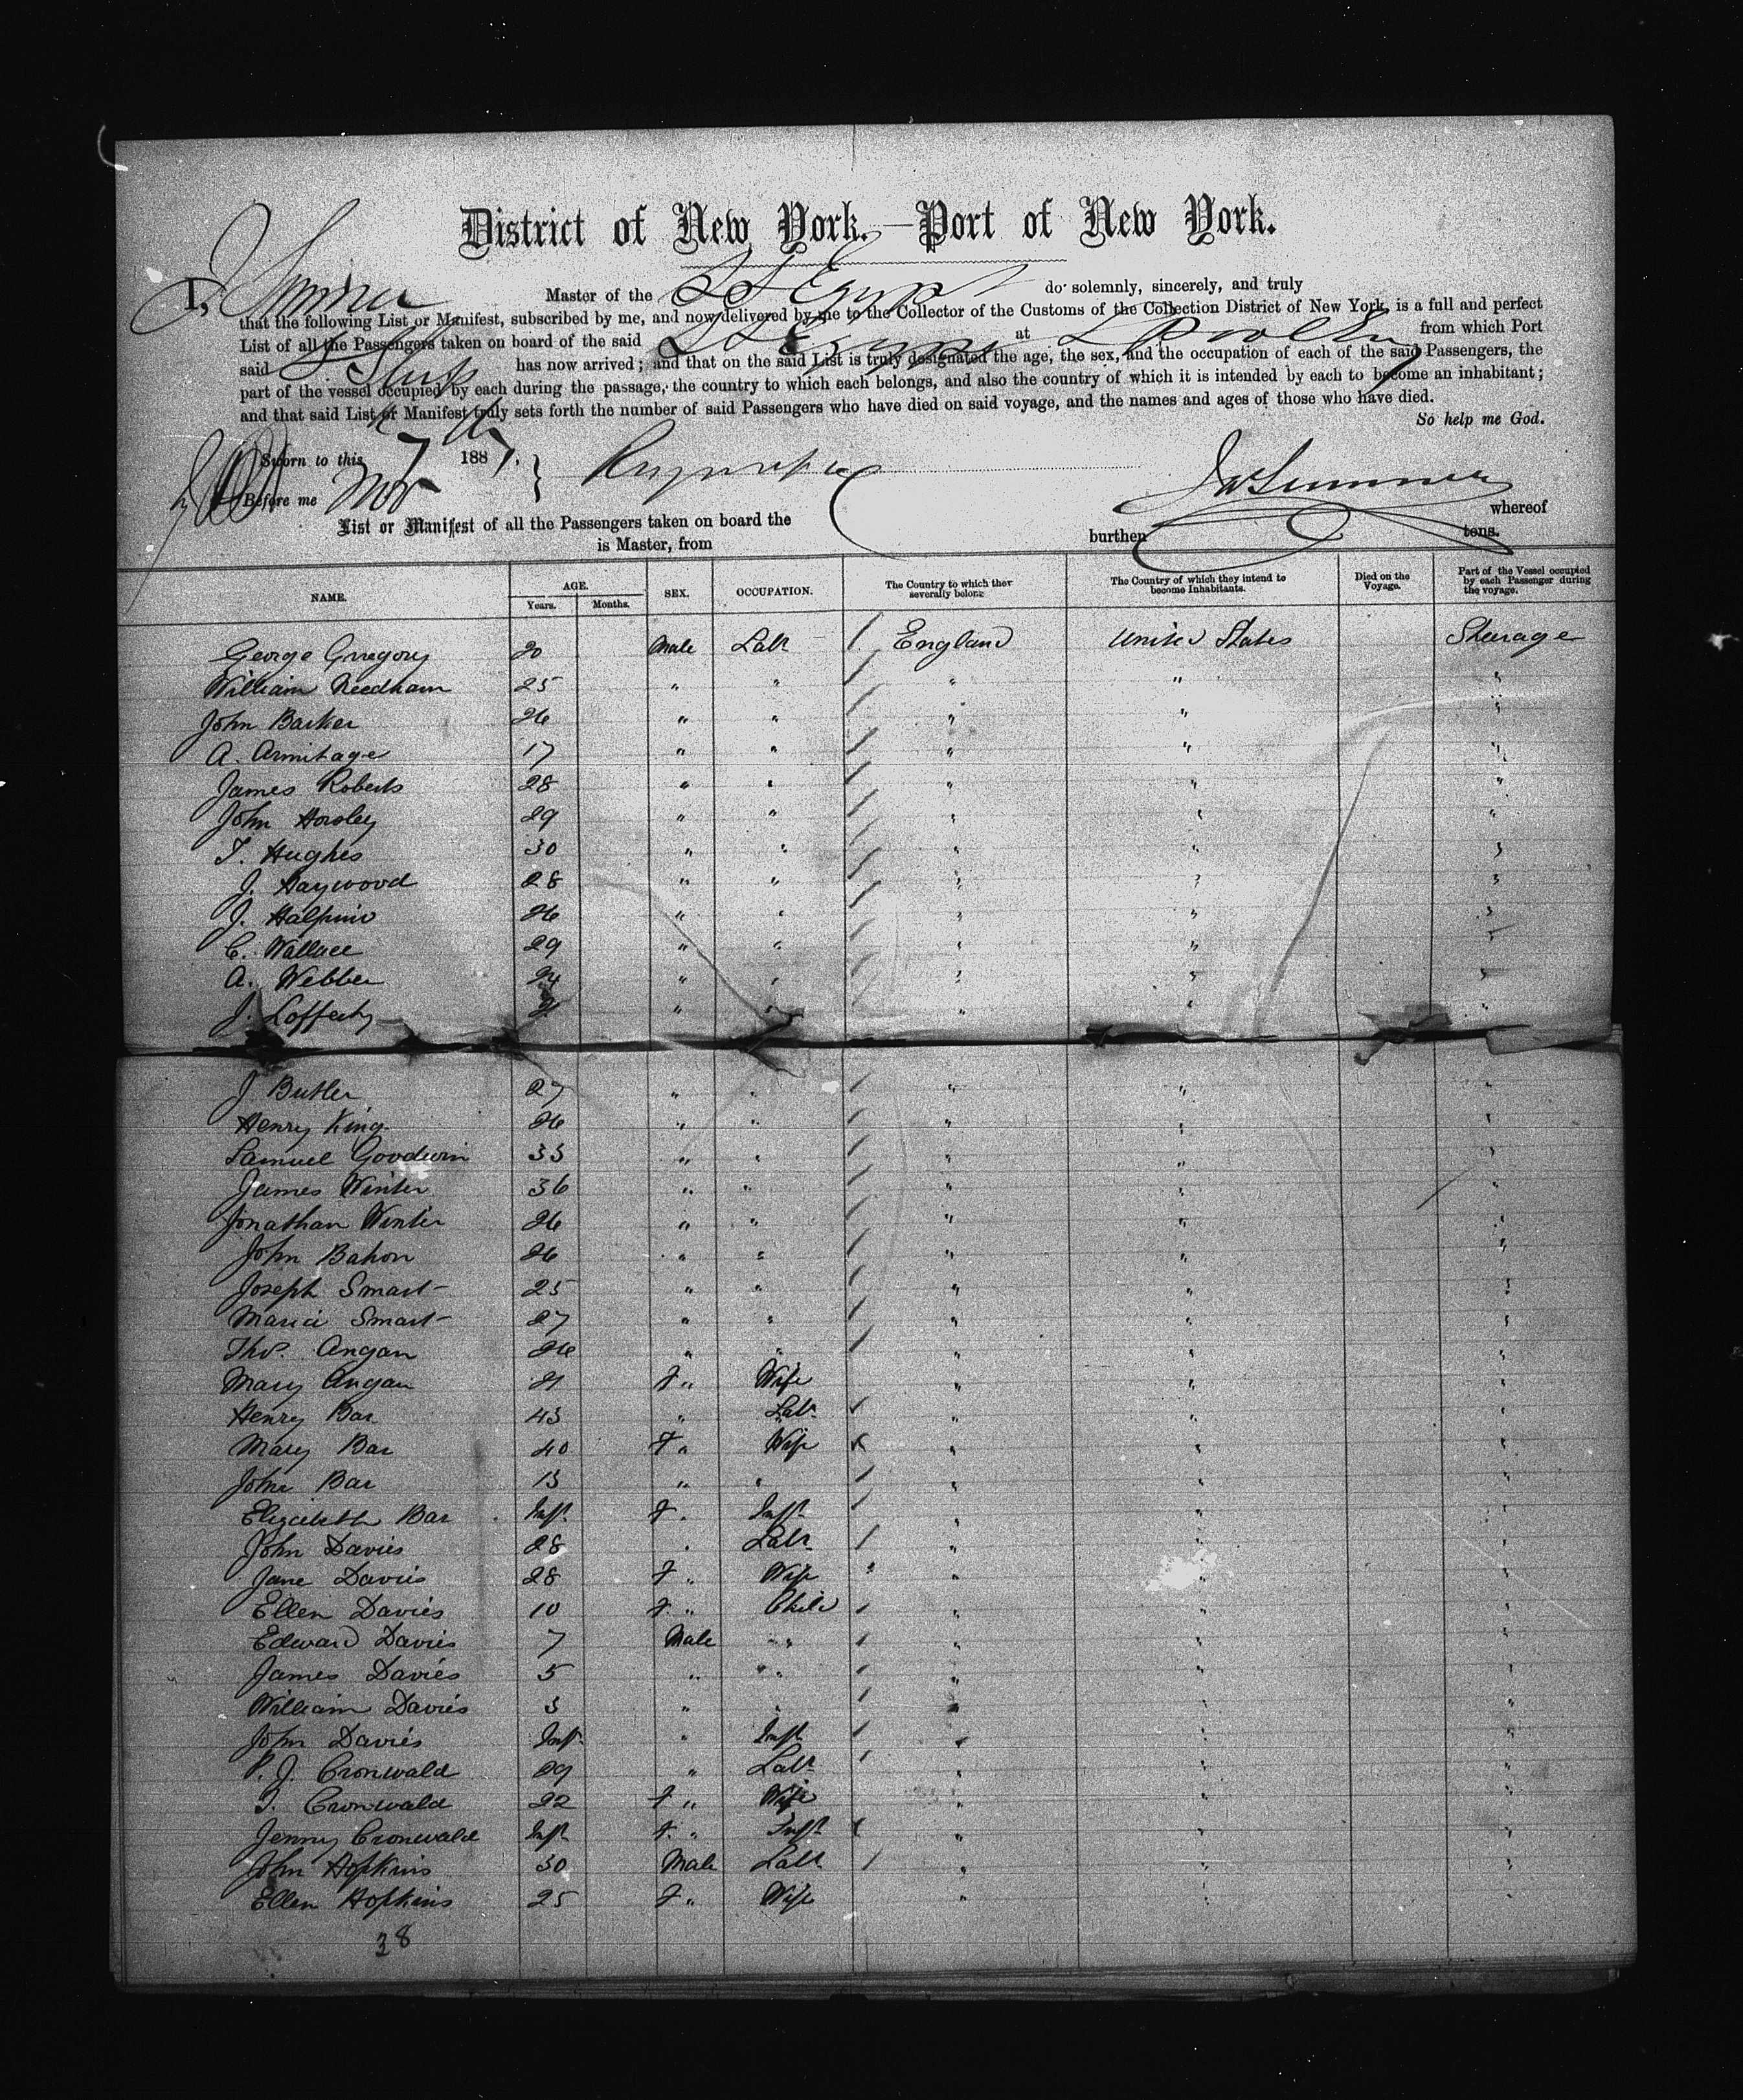 District of New York.—Port of New York.
I, J Sumner Master of the SS Egypt do solemnly, sincerely, and truly
that the following List or Manifest, subscribed by me, and now delivered by me to the Collector of the Customs of the Collection District of New York, is a full and perfect
List of all the Passengers taken on board of the said SS Egypt at from which Port
said has now arrived; and that on the said List is truly designated the age, the sex, and the occupation of each of the said Passengers, the
part of the vessel occupied by each during the passage, the country to which each belongs, and also the country of which it is intended by each to become an inhabitant;
and that said List or Manifest truly sets forth the number of said Passengers who have died on said voyage, and the names and ages of those who have died.
So help me God.
Sworn to this 7th 188
Before me Nov
Sumner
List or Manifest of all the Passengers taken on board the whereof
is Master, from burthen tons.
NAME. AGE. Years. Months. SEX. OCCUPATION. The Country to which they severally belong The Country of which they intend to become Inhabitants. Died on the Voyage. Part of the Vessel occupied by each Passenger during the voyage.
George Gregory 20 Male Labr / England United States Steerage
William Needham 25 " " / " " "
John Barker 26 " " / " " "
A. Armitage 17 " " / " " "
James Roberts 28 " " / " " "
John Horsley 29 " " / " " "
T. Hughes 30 " " / " " "
J. Haywood 28 " " / " " "
J. Halpin 26 " " / " " "
C. Wallace 29 " " / " " "
A. Webber 24 " " / " " "
J. Lafferty 21 " " " "
J Butler 27 " " / " " "
Henry King 26 " " / " " "
Samuel Goodwin 33 " " / " " "
James Winter 36 " " / " " "
Jonathan Winter 26 " " / " " "
John Bahon 26 " " / " " "
Joseph Smart 25 " " / " " "
Maria Smart 27 " " / " " "
Thos. Angan 26 " " / " " "
Mary Angan 21 F " Wife " " "
Henry Bar 43 " Labr / " " "
Mary Bar 40 F " Wife " " "
John Bar 13 " " / " " "
Elizabeth Bar Inft F. Inft / " " "
John Davies 28 " Labr / " " "
Jane Davies 28 F " Wife " " " "
Ellen Davies 10 F " Child / " " "
Edward Davies 7 Male " / " " "
James Davies 5 " " / " " "
William Davies 3 " " / " " "
John Davies Inft " Inft / " " "
P. J. Cronwald 29 " Labr / " " "
J. Cronwald 22 F " Wife " " "
Jenny Cronwald Inft F. " Inft " " "
John Hopkins 30 Male Labr / " " "
Ellen Hopkins 25 F " Wife " " "
38